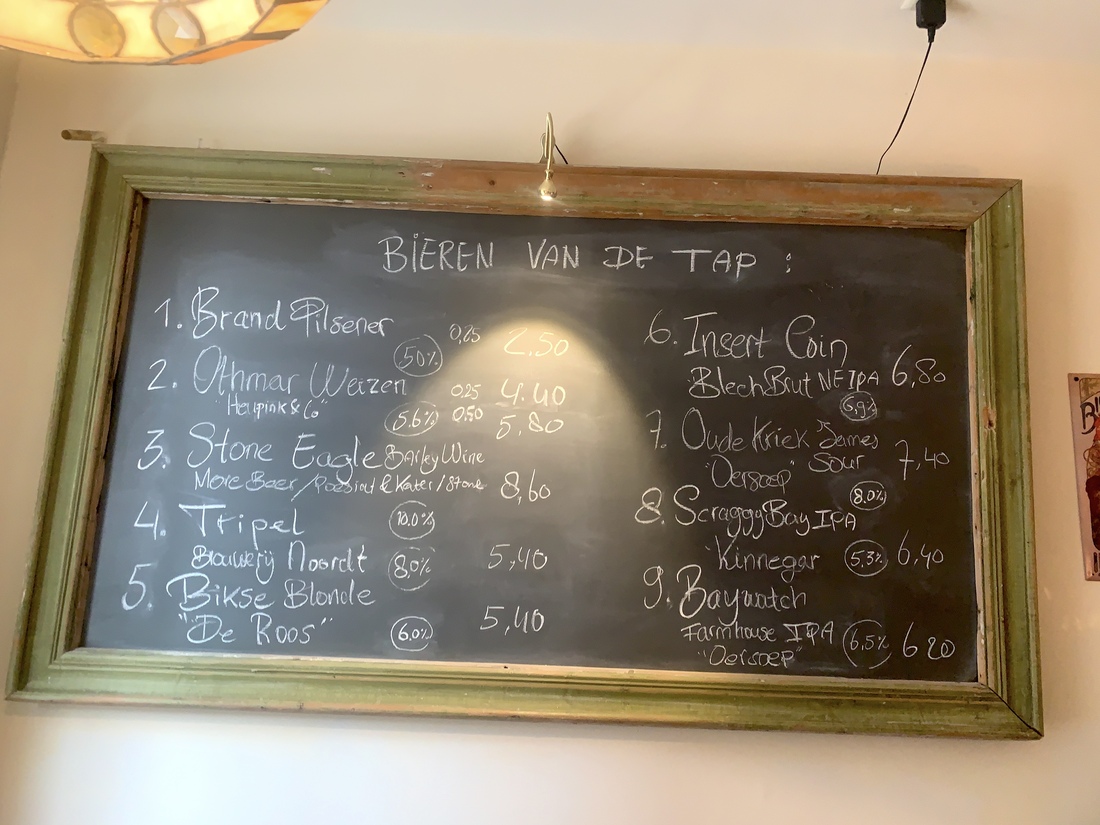 BIEREN VAN DE TAP :
1. Brand Pilsener 0,25 2.50
5.0%
2. Othmar Weizen 0.25 4.40
"Heupink & Co" 5.6% 0,50 5,80
3. Stone Eagle Barley Wine
More Beer / & Kater / Stone 8,60
4. Tripel 10.0%
Brouwerij Noordt 8,0% 5,40
5. Bikse Blonde
"De Roos" 6.0% 5,40
6. Insert Coin
BlechBrut NEIPA 6,80
6,9%
7. Oude Kriek James
"Oersoep" Sour 7,40
8.0%
8. ScraggyBay IPA
Kinnegar 5.3% 6,40
9. Baywatch
Farmhouse IPA 6,5% 6 20
"Oersoep"